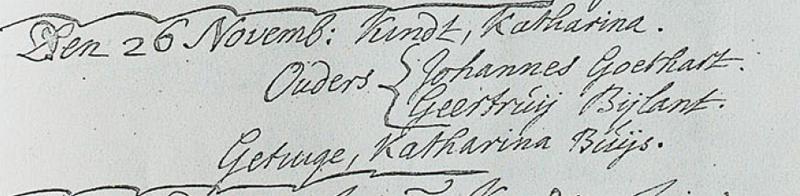 Den 26 Novemb: Kindt, Katharina.
Ouders { Johannes Goethart.
Geertruij Bijlant.
Getuige, Katharina Buijs.